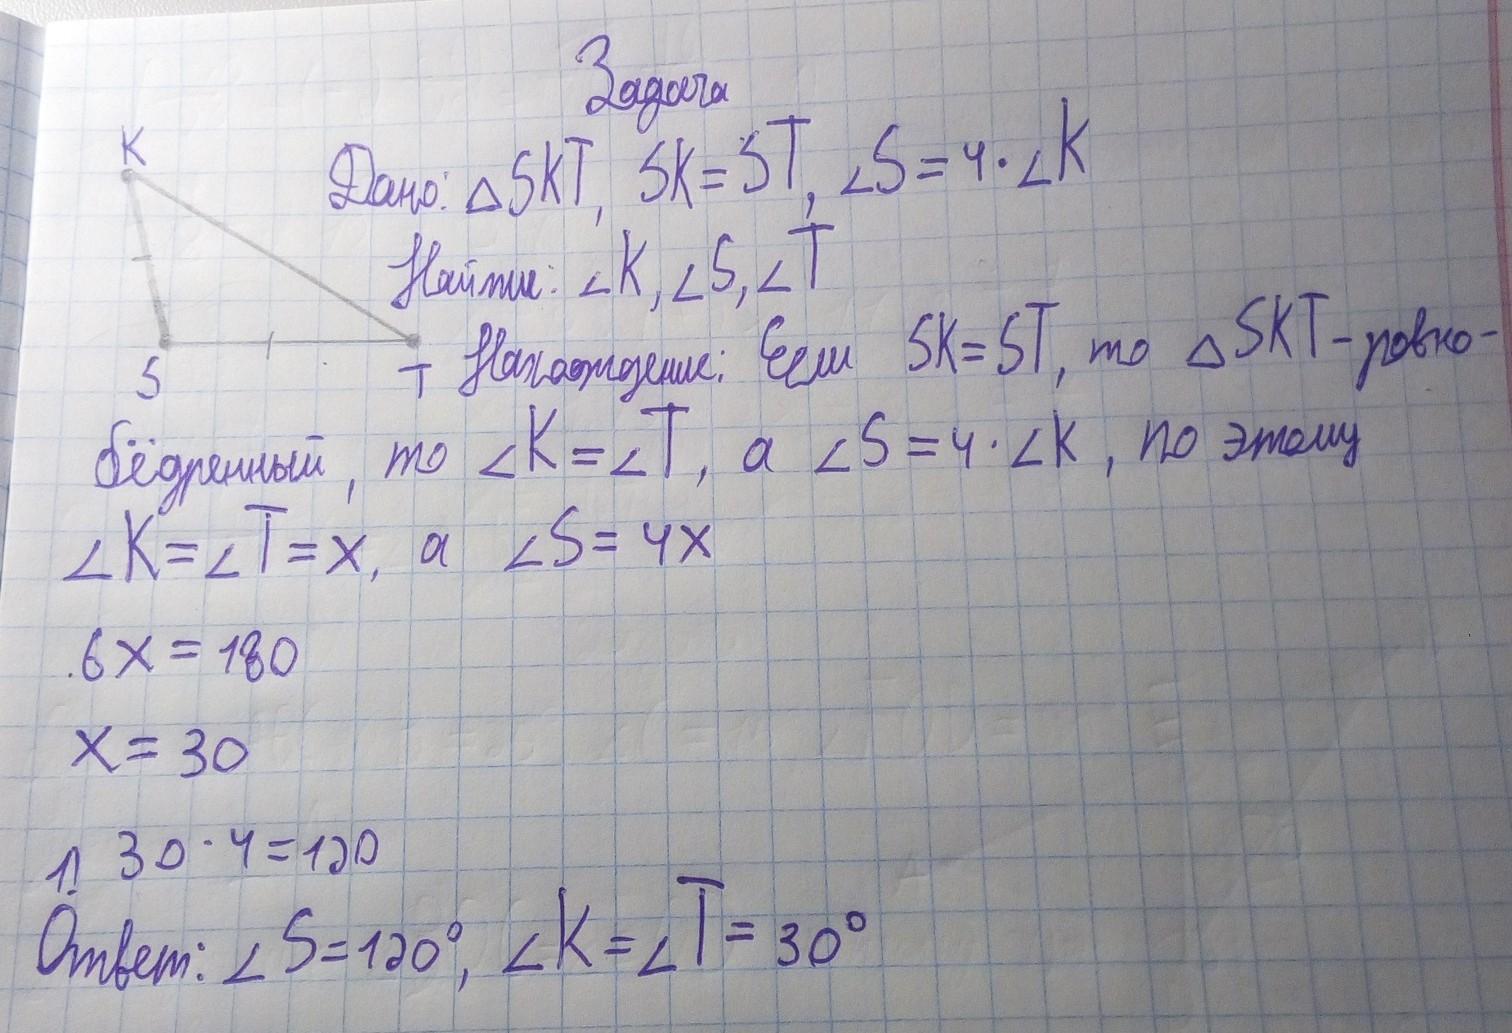 Задача
K
Дано: △SKT, SK=ST, ∠S=4·∠K
Найти: ∠K, ∠S, ∠T
S
T
Нахождение: Если SK=ST, то △SKT-ровно-
бёдренный, то ∠K=∠T, а ∠S=4·∠K, по этому
∠K=∠T=x, а ∠S=4x
6x=180
x=30
1) 30·4=120
Ответ: ∠S=120°, ∠K=∠T=30°